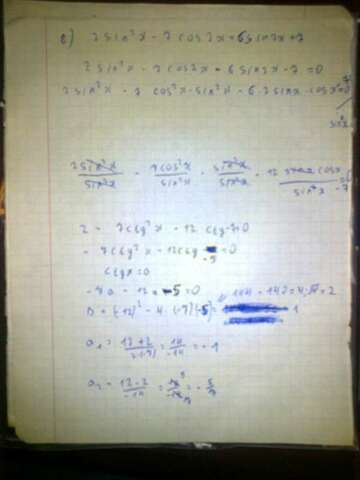 e) 2 sin²x - 7 cos2x = 6 sin2x + 7
2 sin²x - 7 cos2x - 6 sin2x - 7 = 0
2 sin²x - 7 cos²x - sin²x - 6·2 sinx · cosx = 0
sin²x
2sin²x/sin²x - 7cos²x/sin²x - sin²x/sin²x - 12 sinx cosx/sin²x - 7
2 - 7ctg²x - 12 ctg-7=0
- 7ctg²x - 12ctg -5=0
ctgx = a
-7a - 12a -5=0
D = (-12)² - 4·(-7)(-5)= 144 - 140=4; √=2
1
a₁ = 12+2/2·(-7) = 14/-14 = -1
a₂ = 12-2/-14 = 10/-14 = -5/7